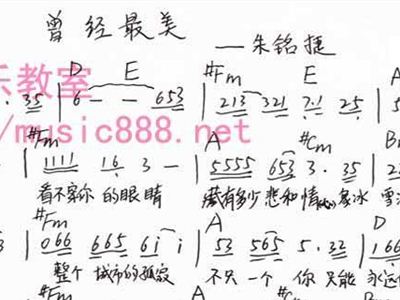 曾经最美
——朱铭捷
乐教室
D E #Fm E A
35 | 6 - - 653 | 213 321 7.1 25 | 5
/music888.net
#Fm A #Cm
1111 16 3 - | 5555 653 3. 35 | 23
看不穿你的眼睛 藏有多少悲和情
#Fm A D
| 066 665 6i i | 53 565 5.32 | 166
整个城市的孤寂 不只一个你只能永远
#Fm E A